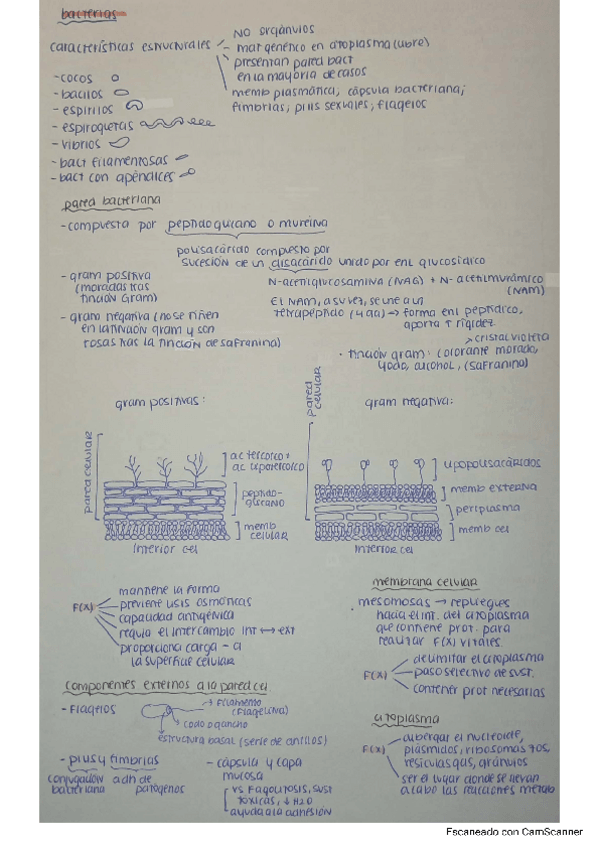 bacterias
características estructurales
NO orgánulos
mat genético en citoplasma (libre)
presentan pared bact
en la mayoría de casos
memb plasmática, cápsula bacteriana,
fimbrias, pilis sexuales, flagelos
- cocos
- bacilos
- espirilos
- espiroquetas
- vibrios
- bact filamentosas
- bact con apéndices
pared bacteriana
- compuesta por peptidoglicano o mureína
polisacárido compuesto por
sucesión de un disacárido unido por enl glucosídico
N-acetilglucosamina (NAG) + N-acetilmurámico
(NAM)
El NAM, a su vez, se une a un
tetrapéptido (4 aa) → forma enl peptídico,
aporta ↑ rigidez
- gram positiva
(moradas tras
tinción Gram)
- gram negativa (no se tiñen
en la tinción gram y son
rosas tras la tinción de safranina)
cristal violeta
· tinción gram: colorante morado,
yodo, alcohol, (safranina)
gram positivas:
pared celular
ac teicoico +
ac lipoteicoico
peptido-
glicano
memb
celular
interior cel
gram negativa:
pared
celular
lipopolisacáridos
memb externa
periplasma
memb cel
interior cel
F(x)
mantiene la forma
previene lisis osmóticas
capacidad antigénica
regula el intercambio int ↔ ext
proporciona carga - a
la superficie celular
componentes externos a la pared cel
- Flagelos
Filamento
(Flagelina)
codo o gancho
estructura basal (serie de anillos)
- pilus y fimbrias
conjugación
bacteriana
adh de
patógenos
- cápsula y capa
mucosa
vs Fagocitosis, sust
tóxicas, ↓ H2O
ayuda a la adhesión
membrana celular
· mesomosas → repliegues
hacia el int. del citoplasma
que contiene prot. para
realizar F(x) vitales.
F(x)
delimitar el citoplasma
paso selectivo de sust.
contener prot necesarias
citoplasma
F(x)
albergar el nucleoide,
plásmidos, ribosomas 70s,
vesículas gas, gránulos
ser el lugar donde se llevan
a cabo las reacciones metab
Escaneado con CamScanner